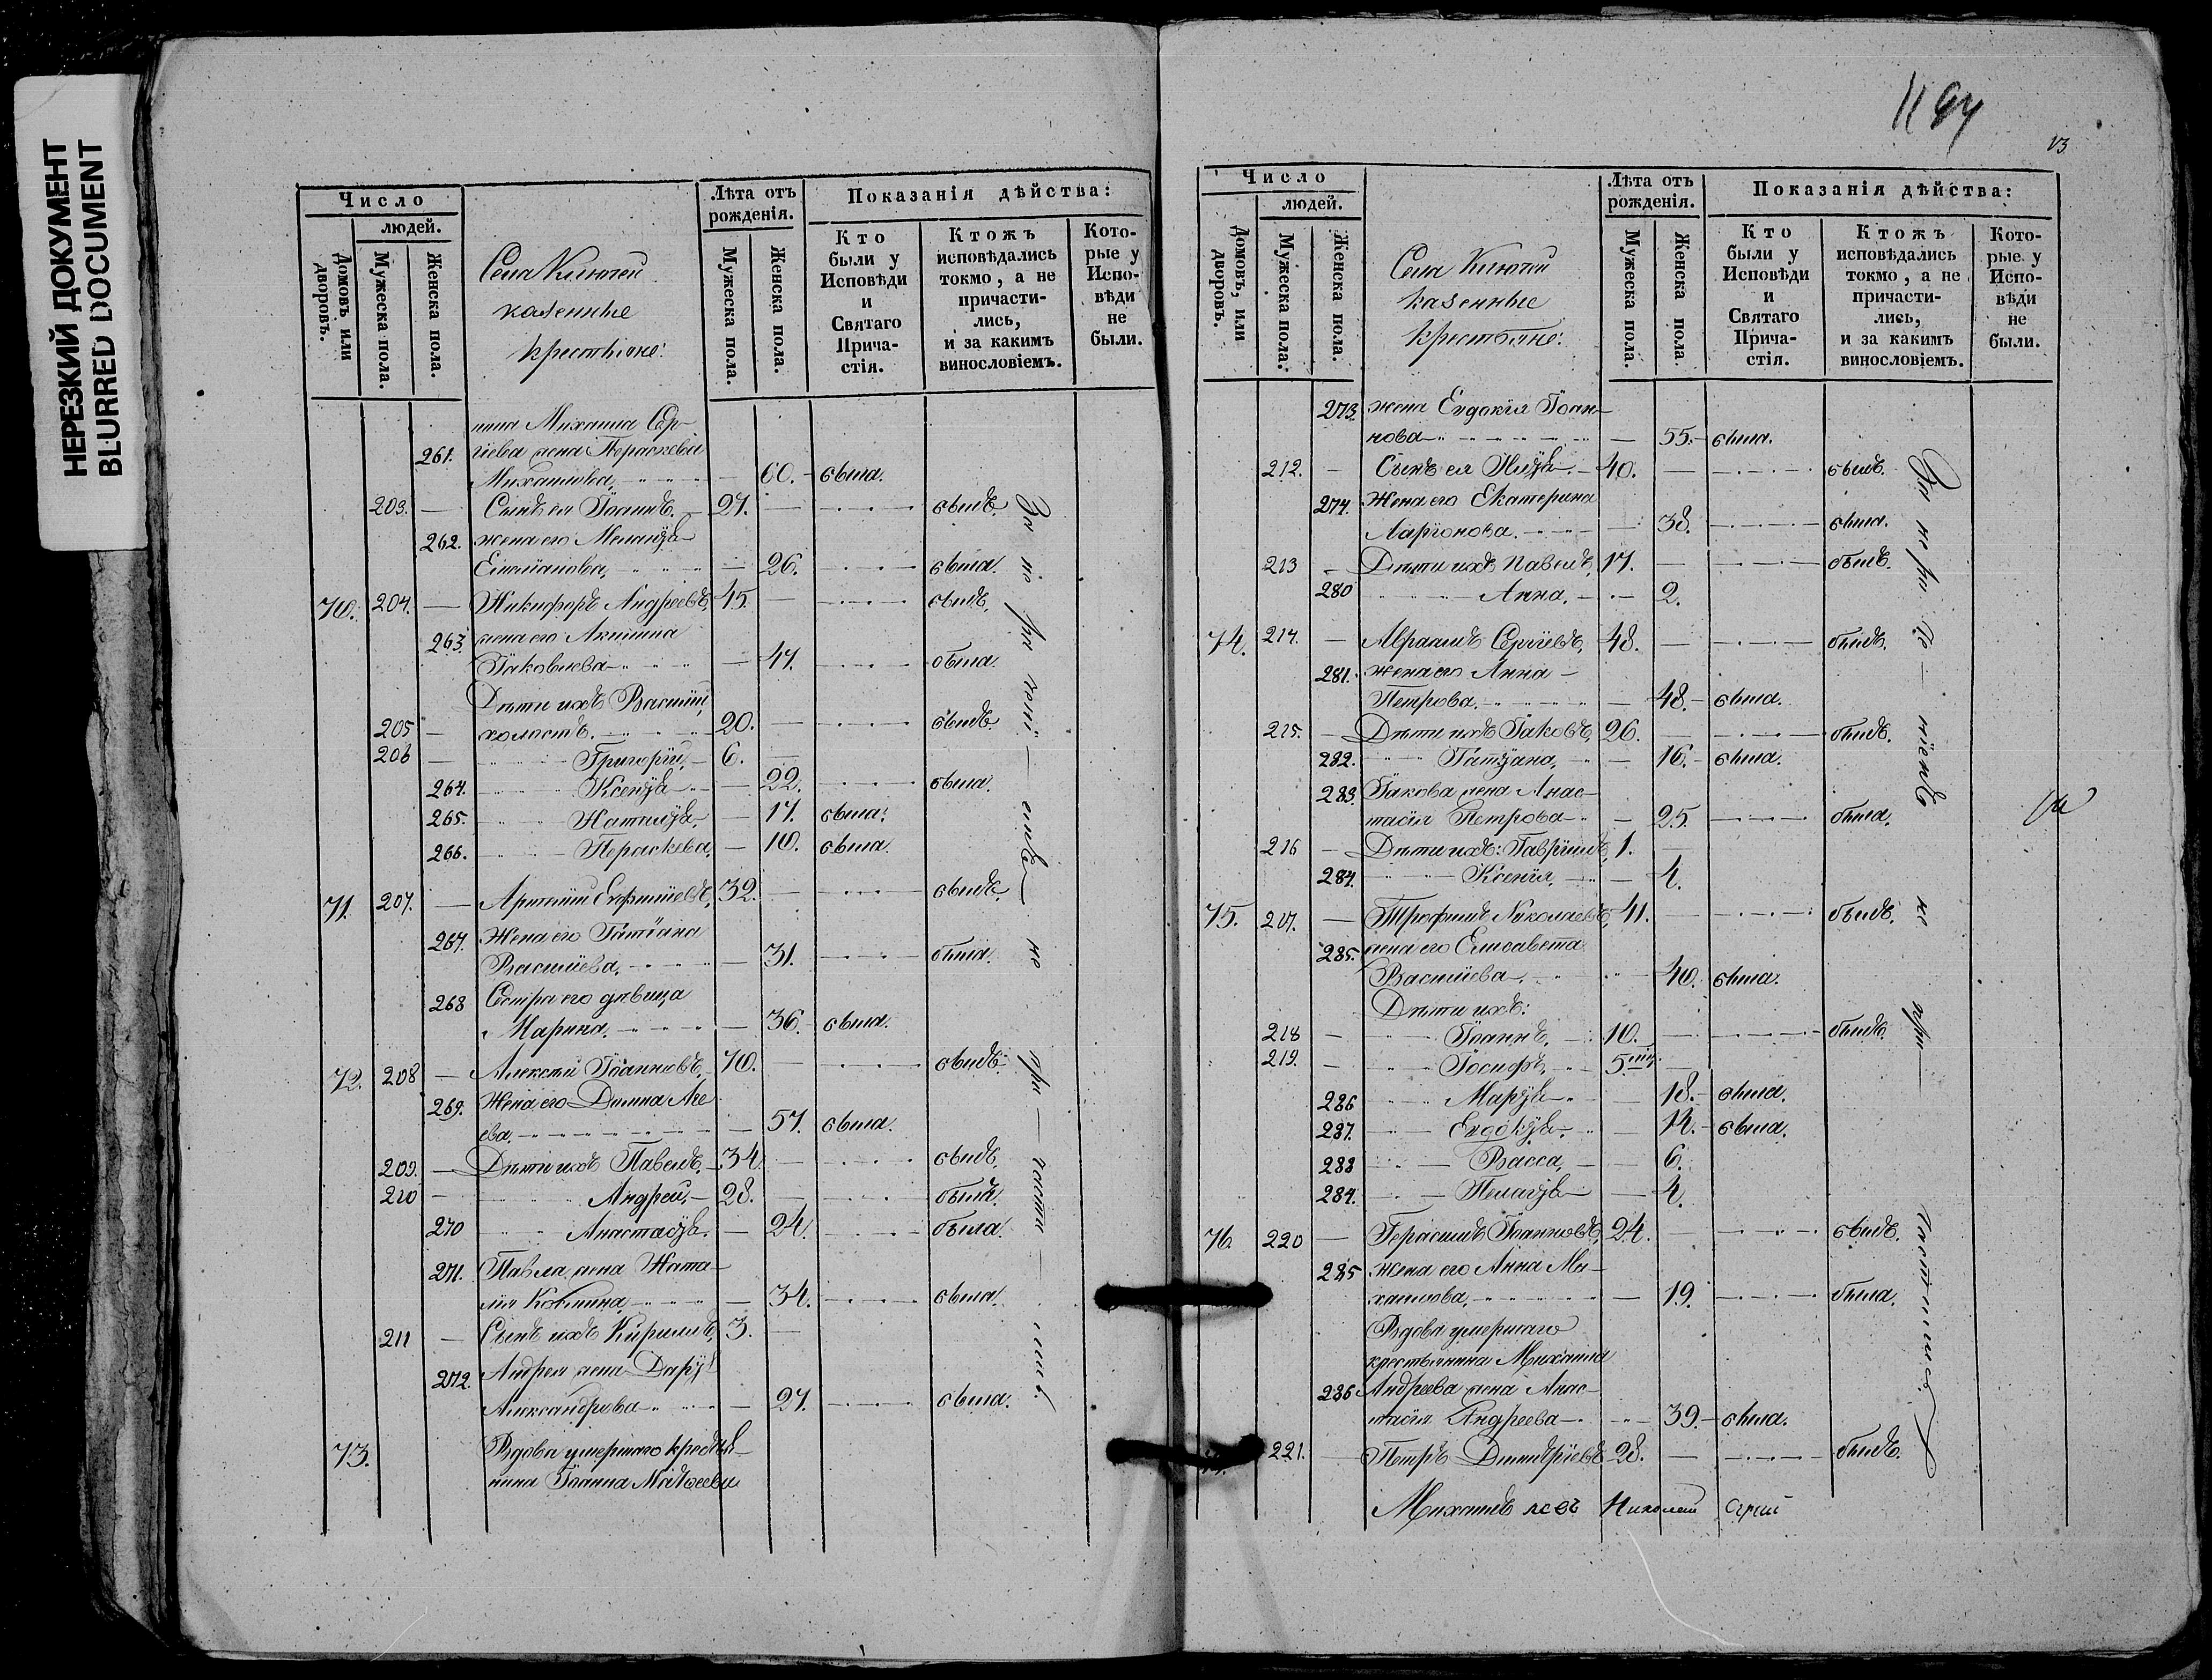 НЕРЕЗКИЙ ДОКУМЕНТ
BLURRED DOCUMENT
Число
людей.
Домовъ, или дворовъ.
Мужеска пола.
Женска пола.
Села Ключей
казенные
крестьяне:
Лѣта отъ рожденія.
Мужеска пола.
Женска пола.
Показанія дѣйства:
Кто были у Исповѣди и Святаго Прича-стія.
Ктожъ исповѣдались токмо, а не причасти-лись, и за какимъ винословіемъ.
Кото-рые у Испо-вѣди не были.
нина Михаила Сер-
261. гіева жена Параскева
Михаилова, — 60. — была.
203. — Сынъ ея Іоаннъ. — 27. — былъ.
262. жена его Меланія
Емиліанова, — 26. — была.
70. 204. — Никифоръ Андреевъ, 45. — былъ.
263. жена его Акилина
Іаковлева — 47. — была.
Дѣти ихъ Василій,
205 — холостъ. — 20. — былъ.
206 — Григорій, — 6. —
264. Ксенія — 22. — была.
265. Наталія, — 17. была.
266. Параскева, — 10. была.
71. 207. — Артемій Евфиміевъ, 32. — былъ.
267. Жена его Татіана
Василіева, — 31. — была.
268 Сестра его дѣвица
Марина, — 36. — была.
72. 208 — Алексѣй Іоанновъ, 70. — былъ.
269. Жена его Домна
ева. — 57. была.
209. — Дѣти ихъ Павелъ, — 34. — былъ.
210 — Андрей, — 28. — былъ.
270 Анастасія. — 24. — была.
271. Павла жена Ната-
лія — 34. — была.
211 — Сынъ ихъ Кириллъ, 3. —
272. Андрея жена Дарія
Александрова — 27. — была.
73. Вдова умершаго крестья-
нина Іоанна Моѵсеева
За не
не при
1194
13.
Число
людей.
Домовъ, или дворовъ.
Мужеска пола.
Женска пола.
Села Ключей
казенные
крестьяне:
Лѣта отъ рожденія.
Мужеска пола.
Женска пола
Показанія дѣйства:
Кто были у Исповѣди и Святаго Прича-стія.
Ктожъ исповѣдались токмо, а не причасти-лись, и за какимъ винословіемъ.
Кото-рые у Испо-вѣди не были.
273. жена Евдокія Іоан-
нова — 55. — была.
212. — Сынъ ея Илія — 40. — былъ.
274. Жена его Екатерина
Ларіонова. — 38. — была.
213 — Дѣти ихъ Павелъ, 17. — былъ.
280 Анна, — 2.
74. 214. — Авраамъ Сергіевъ, 48. — былъ.
281. жена его Анна —
Петрова. — 48. — была.
215. — Дѣти ихъ Іаковъ, 26. — былъ.
282. Татіана, — 16. — была.
283. Іакова жена Анас-
тасія Петрова — 25. — была.
216 — Дѣти ихъ: Гавріилъ, 1. —
284. Ксенія, — 4.
75. 217. — Трофимъ Николаевъ, 41. — былъ.
285. жена его Елисавета
Василіева — 40. была.
Дѣти ихъ:
218 — Іоаннъ. — 10. — былъ.
219. — Іосифъ, — 5 —
286 Марія — 18. — была.
287. Евдокія — 12. — была.
288 Васса, — 6.
284. Пелагія — 4.
76. 220 — Герасимъ Іоанновъ, 24. — былъ.
285 жена его Анна Ми-
хаилова, — 19. — была.
Вдова умершаго
крестьянина Михаила
286 Андреева жена Анас-
тасія Андреева — 39. — была.
221. — Петръ Димитріевъ 28. — былъ.
За не ра де — ніемъ не при — частились
Михаилъ Николай